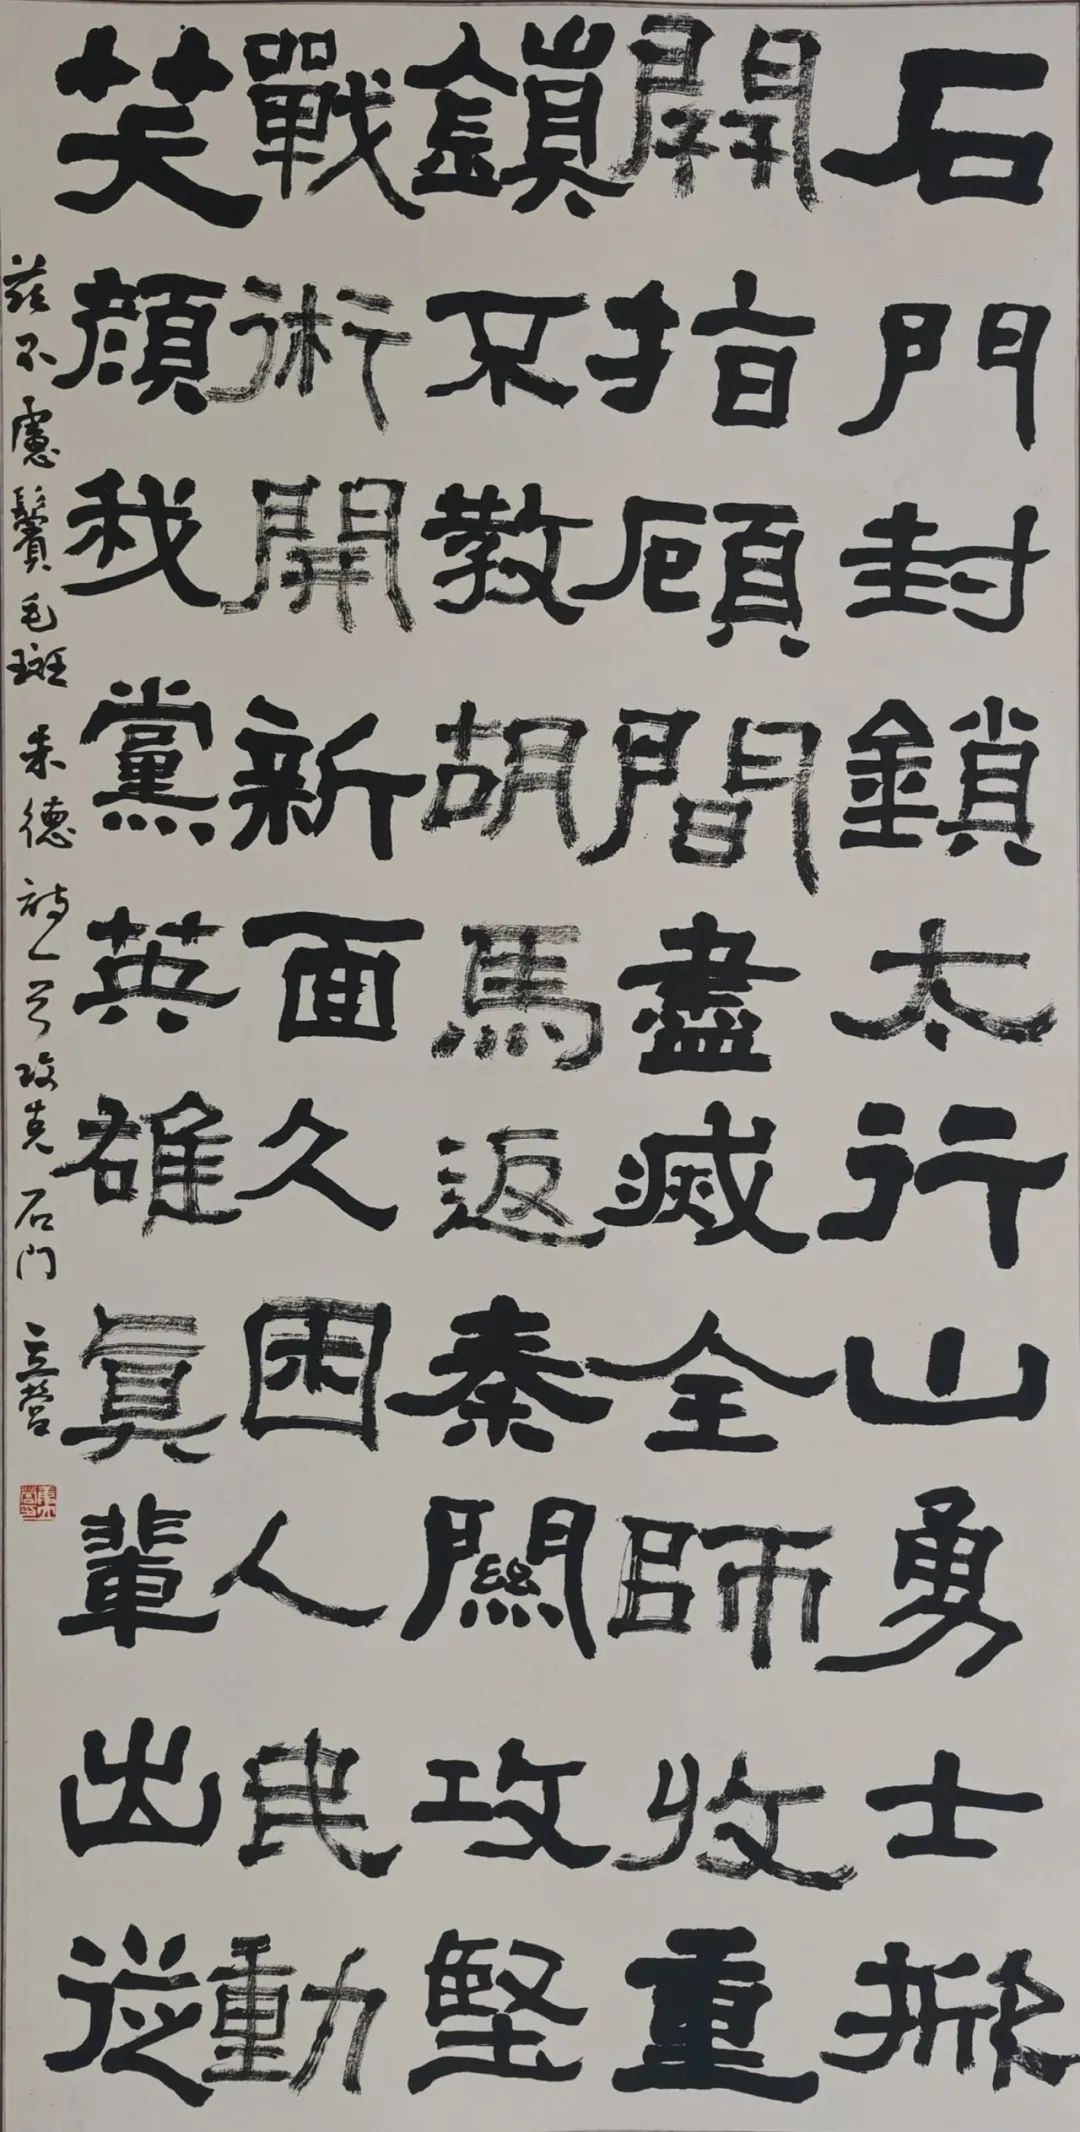 石門封鎖太行山勇士掀
開指顧間盡滅全師收重
鎮不教胡馬返秦關攻堅
戰術開新面久困人民動
笑顏我黨英雄眞輩出從
茲不慮鬢毛斑 朱德詩一首 攻克石门 立營